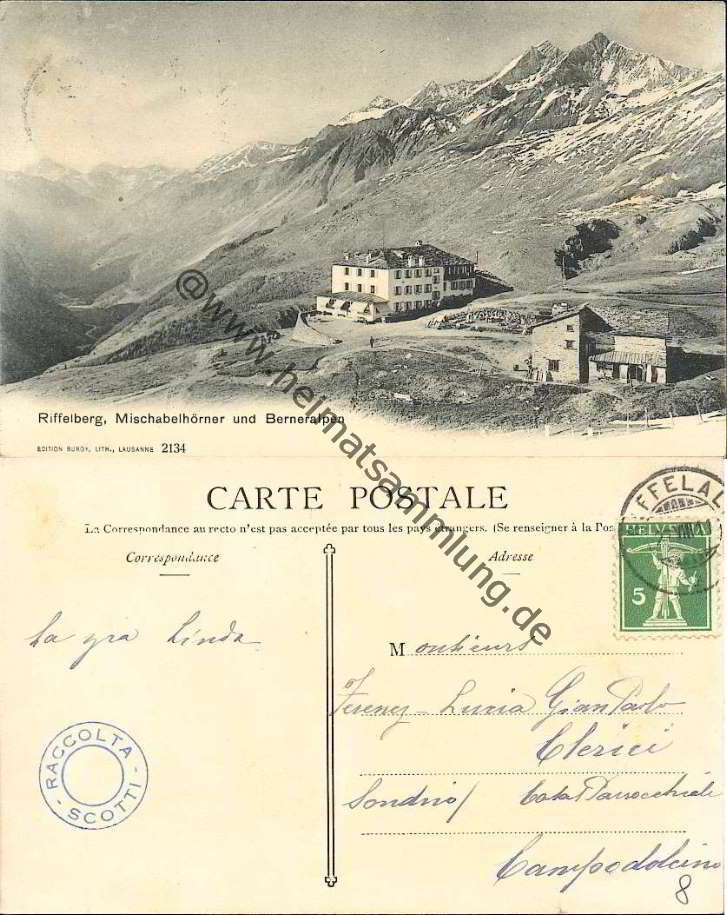 Riffelberg, Mischabelhörner und Berneralpen
EDITION BURGY, LITH., LAUSANNE 2134
@www.heimatsammlung.de
CARTE POSTALE
La Correspondance au recto n'est pas acceptée par tous les pays étrangers. (Se renseigner à la Pos
Correspondance
Adresse
RIFFELAL
HELVETIA
5
La Linda
Monsieurs
Luzia GianPaolo
Clerici
Sondrio/ Casa Parrocchiale
Campodolcino
RACCOLTA
SCOTTI
8